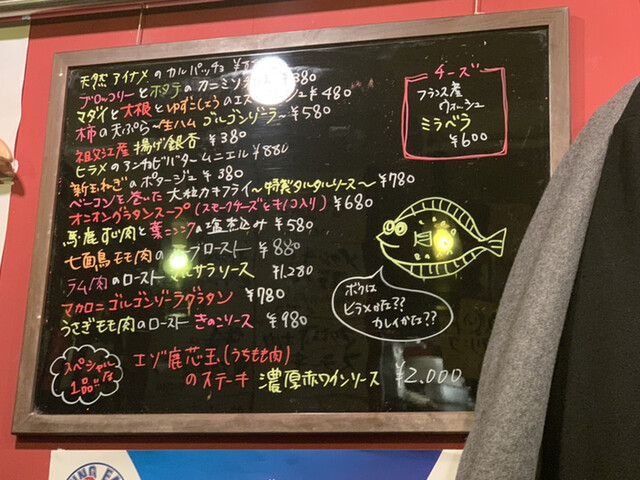 天然アイナメのカルパッチョ
ブロッコリーとホタテのカニミソ ¥380
マダイと大根とゆずこしょうのエス ¥480
柿の天ぷら〜生ハム ゴルゴンゾーラ〜 ¥580
祖父江産 揚げ銀杏 ¥380
ヒラメのアンチョビバタームニエル ¥880
新玉ねぎのポタージュ ¥380
ベーコンを巻いた 大粒カキフライ〜特製タルタルソース〜 ¥780
オニオングラタンスープ(スモークチーズとキノコ入り) ¥680
馬鹿すじ肉と葉ニンニクの塩煮込み ¥580
七面鳥モモ肉の ブロースト ¥880
ラム肉のロースト マルサラソース ¥1,280
マカロニゴルゴンゾーラグラタン ¥780
うさぎモモ肉のロースト きのこソース ¥980
スペシャルな
1品!!
エゾ鹿芯玉(うちもも肉)
のステーキ 濃厚赤ワインソース ¥2,000
チーズ
フランス産
ウォーシュ
ミラベラ
¥600
ボクは
ヒラメかな??
カレイかな??